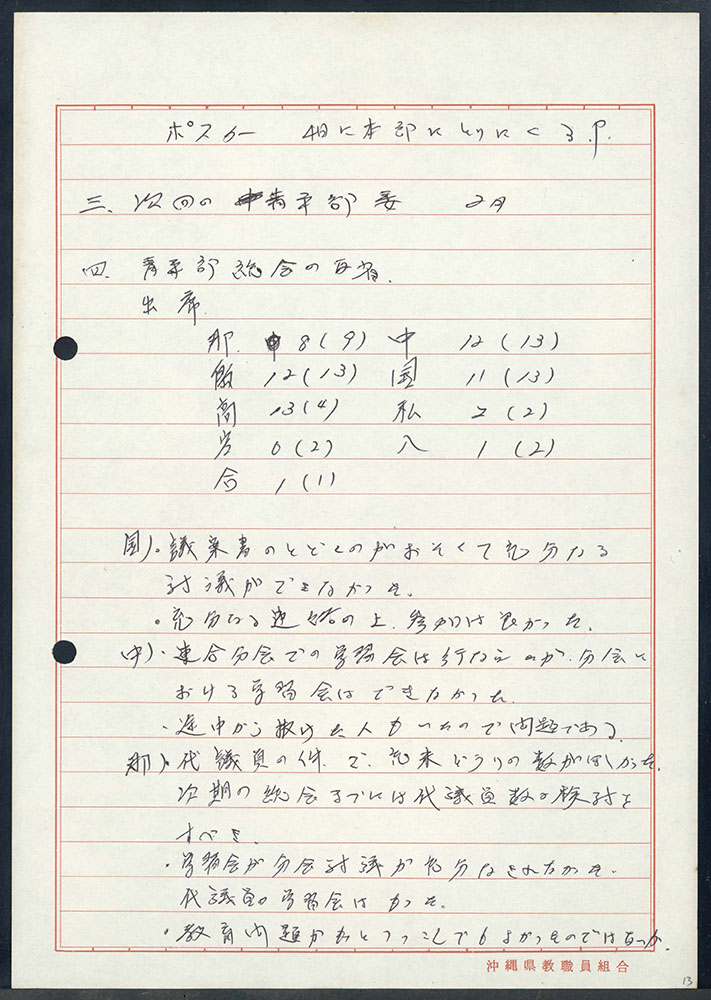 ポスター 4日に本部にとりにくる.P.
三、次回の青年部委 2月
四、青年部総会の反省.
出席
那. 8(9) 中 12(13)
12(13) 国 11(13)
高 13(4) 私 2(2)
労 0(2) 八 1(2)
合 1(1)
国)。議案書のとどくのがおそくて充分なる
討議ができなかった.
・充分なる連絡の上、参加は良かった.
中)・連合分会での学習会は行なえたが、分会に
おける学習会はできなかった
・途中から抜けた人もいたので問題である.
那)。代議員の件で、どうりの数がほしかった.
次期の総会までには代議員数の検討を
すべき.
・学習会が分会討議が充分なされなかった.
代議員の学習会はもった.
・教育問題がもっとつっこんでもよかったのではないか.
沖縄県教職員組合
13